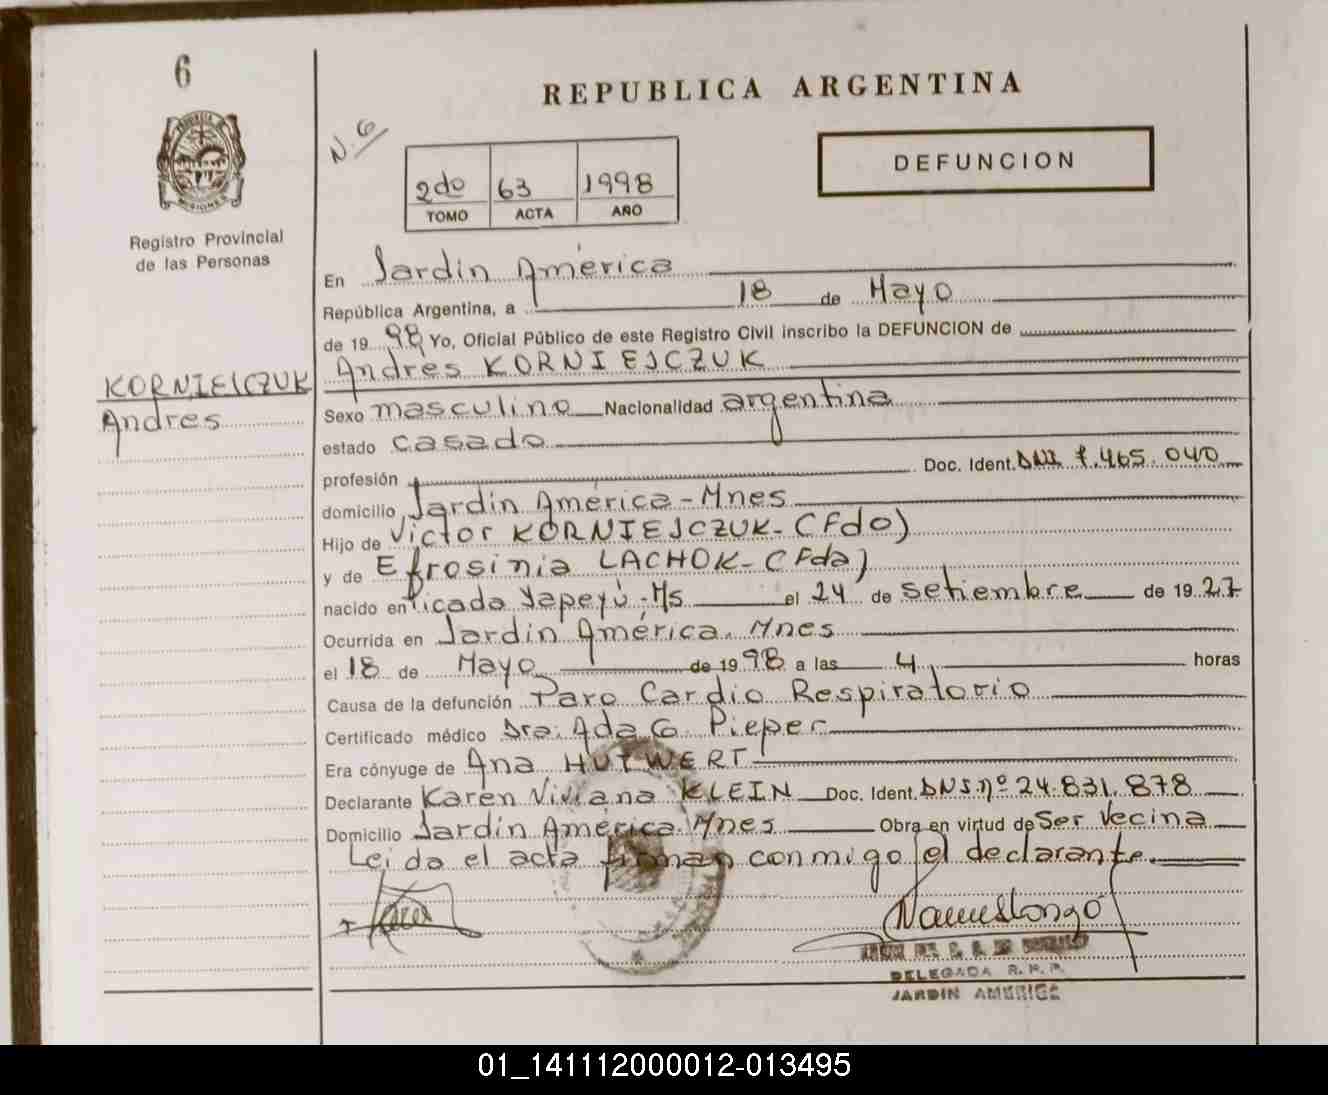 6
REPUBLICA ARGENTINA
N. 6
DEFUNCION
2do 63 1998
TOMO ACTA AÑO
Registro Provincial
de las Personas
En Jardín América
República Argentina, a 18 de Mayo
de 19 98 Yo, Oficial Público de este Registro Civil inscribo la DEFUNCION de
KORNIEJCZUK
Andres
Andres KORNIEJCZUK
Sexo masculino Nacionalidad argentina
estado casado
profesión Doc. Ident. DNI 7.465.040
domicilio Jardín América - Mnes
Hijo de Victor KORNIEJCZUK - (Fdo)
y de Efrosinia LACHOK - (Fda)
nacido en Yapeyú - Ms el 24 de setiembre de 19 27
Ocurrida en Jardín América. Mnes
el 18 de Mayo de 19 98 a las 4 horas
Causa de la defunción Paro Cardio Respiratorio
Certificado médico Dra. Ada G Pieper
Era cónyuge de Ana HUTWERT
Declarante Karen Viviana KLEIN Doc. Ident. DNI. nº 24.831.878
Domicilio Jardín América. Mnes Obra en virtud de Ser Vecina
Leida el acta firman conmigo el declarante
DELEGADA R.P.P.
JARDIN AMERICA
01_141112000012-013495